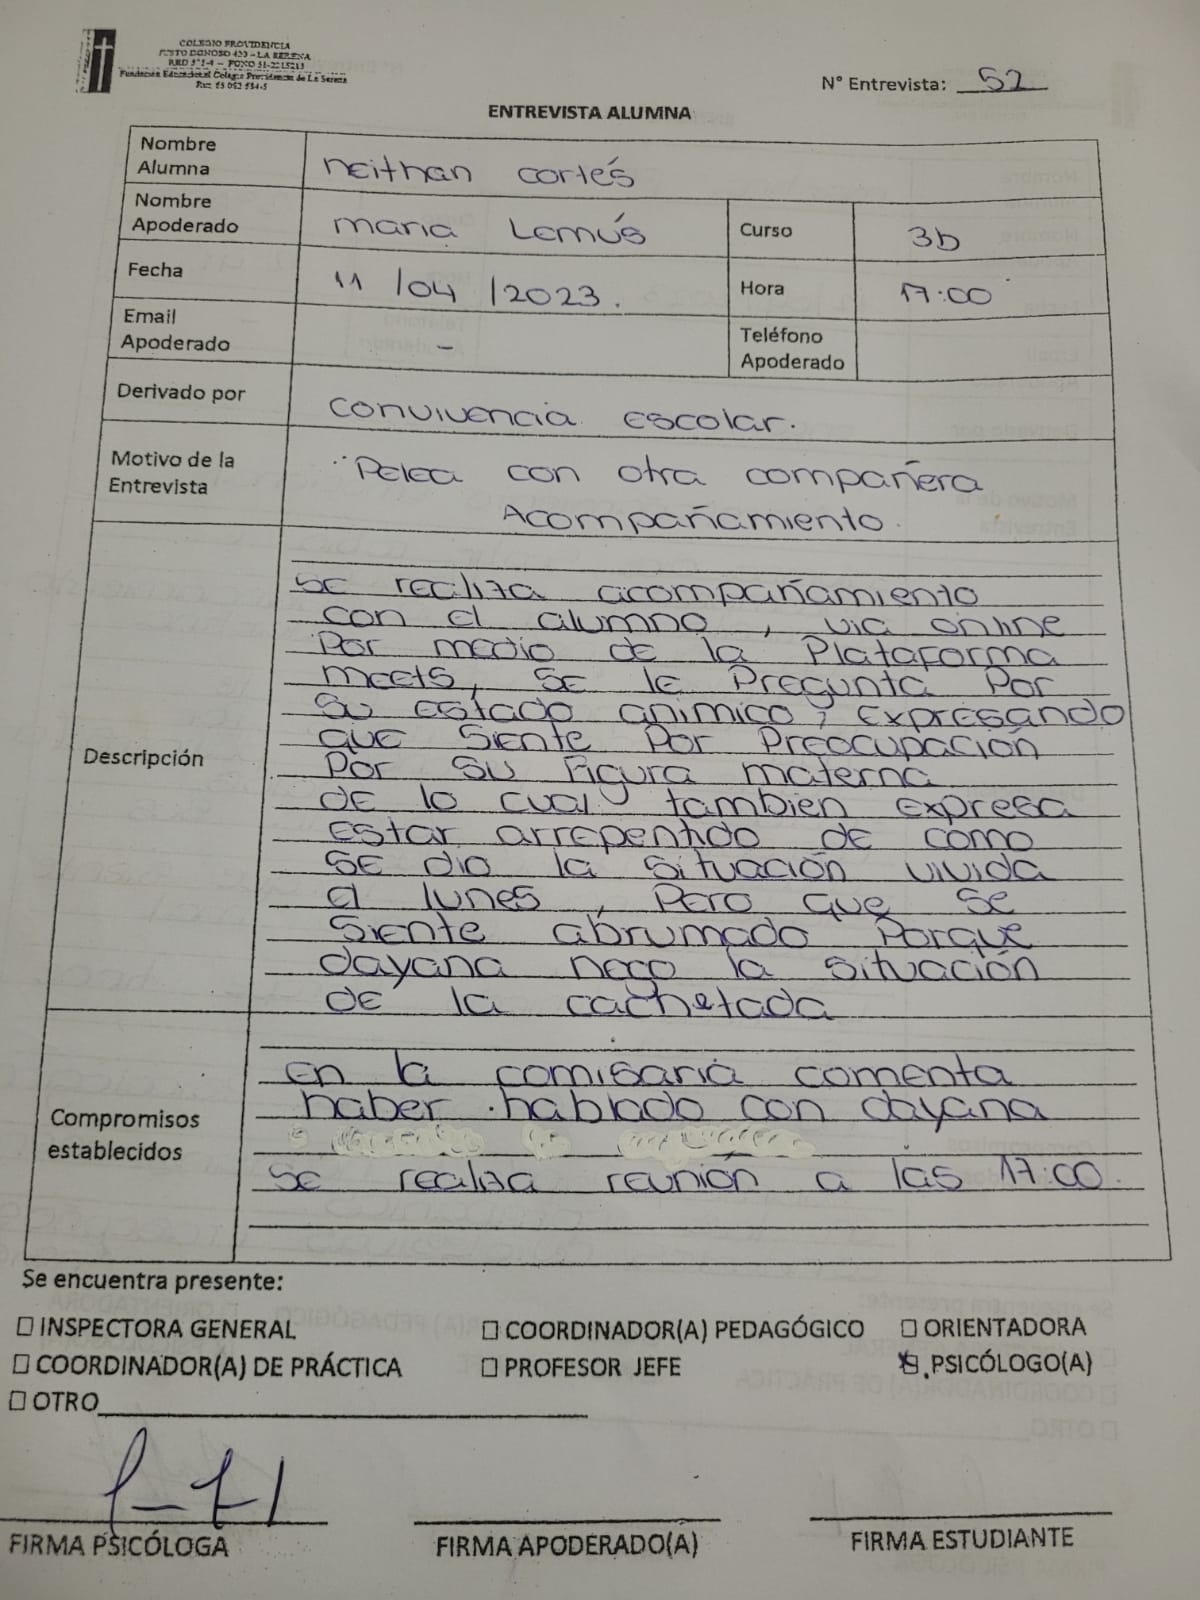 COLEGIO PROVIDENCIA
JUSTO DONOSO 420 - LA SERENA
Fundación Educacional Colegio Providencia de La Serena
N° Entrevista: 52
ENTREVISTA ALUMNA
Nombre Alumna neithan cortés
Nombre Apoderado maria Lemús Curso 3b
Fecha 11/04/2023. Hora 17:00
Email Apoderado - Teléfono Apoderado
Derivado por convivencia escolar.
Motivo de la Entrevista Pelea con otra compañera
Acompañamiento.
Descripción
se realiza acompañamiento
con el alumno, via online
Por medio de la Plataforma
meets, se le Pregunta Por
su estado animico, expresando
que siente Por Preocupación
Por su Figura materna
de lo cual tambien expresa
estar arrepentido de como
se dio la situación vivida
el lunes, Pero que se
siente abrumado Porque
dayana nego la situación
de la cachetada
Compromisos establecidos
en la comisaria comenta
haber hablado con dayana
se realiza reunión a las 17:00.
Se encuentra presente:
☐ INSPECTORA GENERAL ☐ COORDINADOR(A) PEDAGÓGICO ☐ ORIENTADORA
☐ COORDINADOR(A) DE PRÁCTICA ☐ PROFESOR JEFE ☒ PSICÓLOGO(A)
☐ OTRO
FIRMA PSICÓLOGA FIRMA APODERADO(A) FIRMA ESTUDIANTE